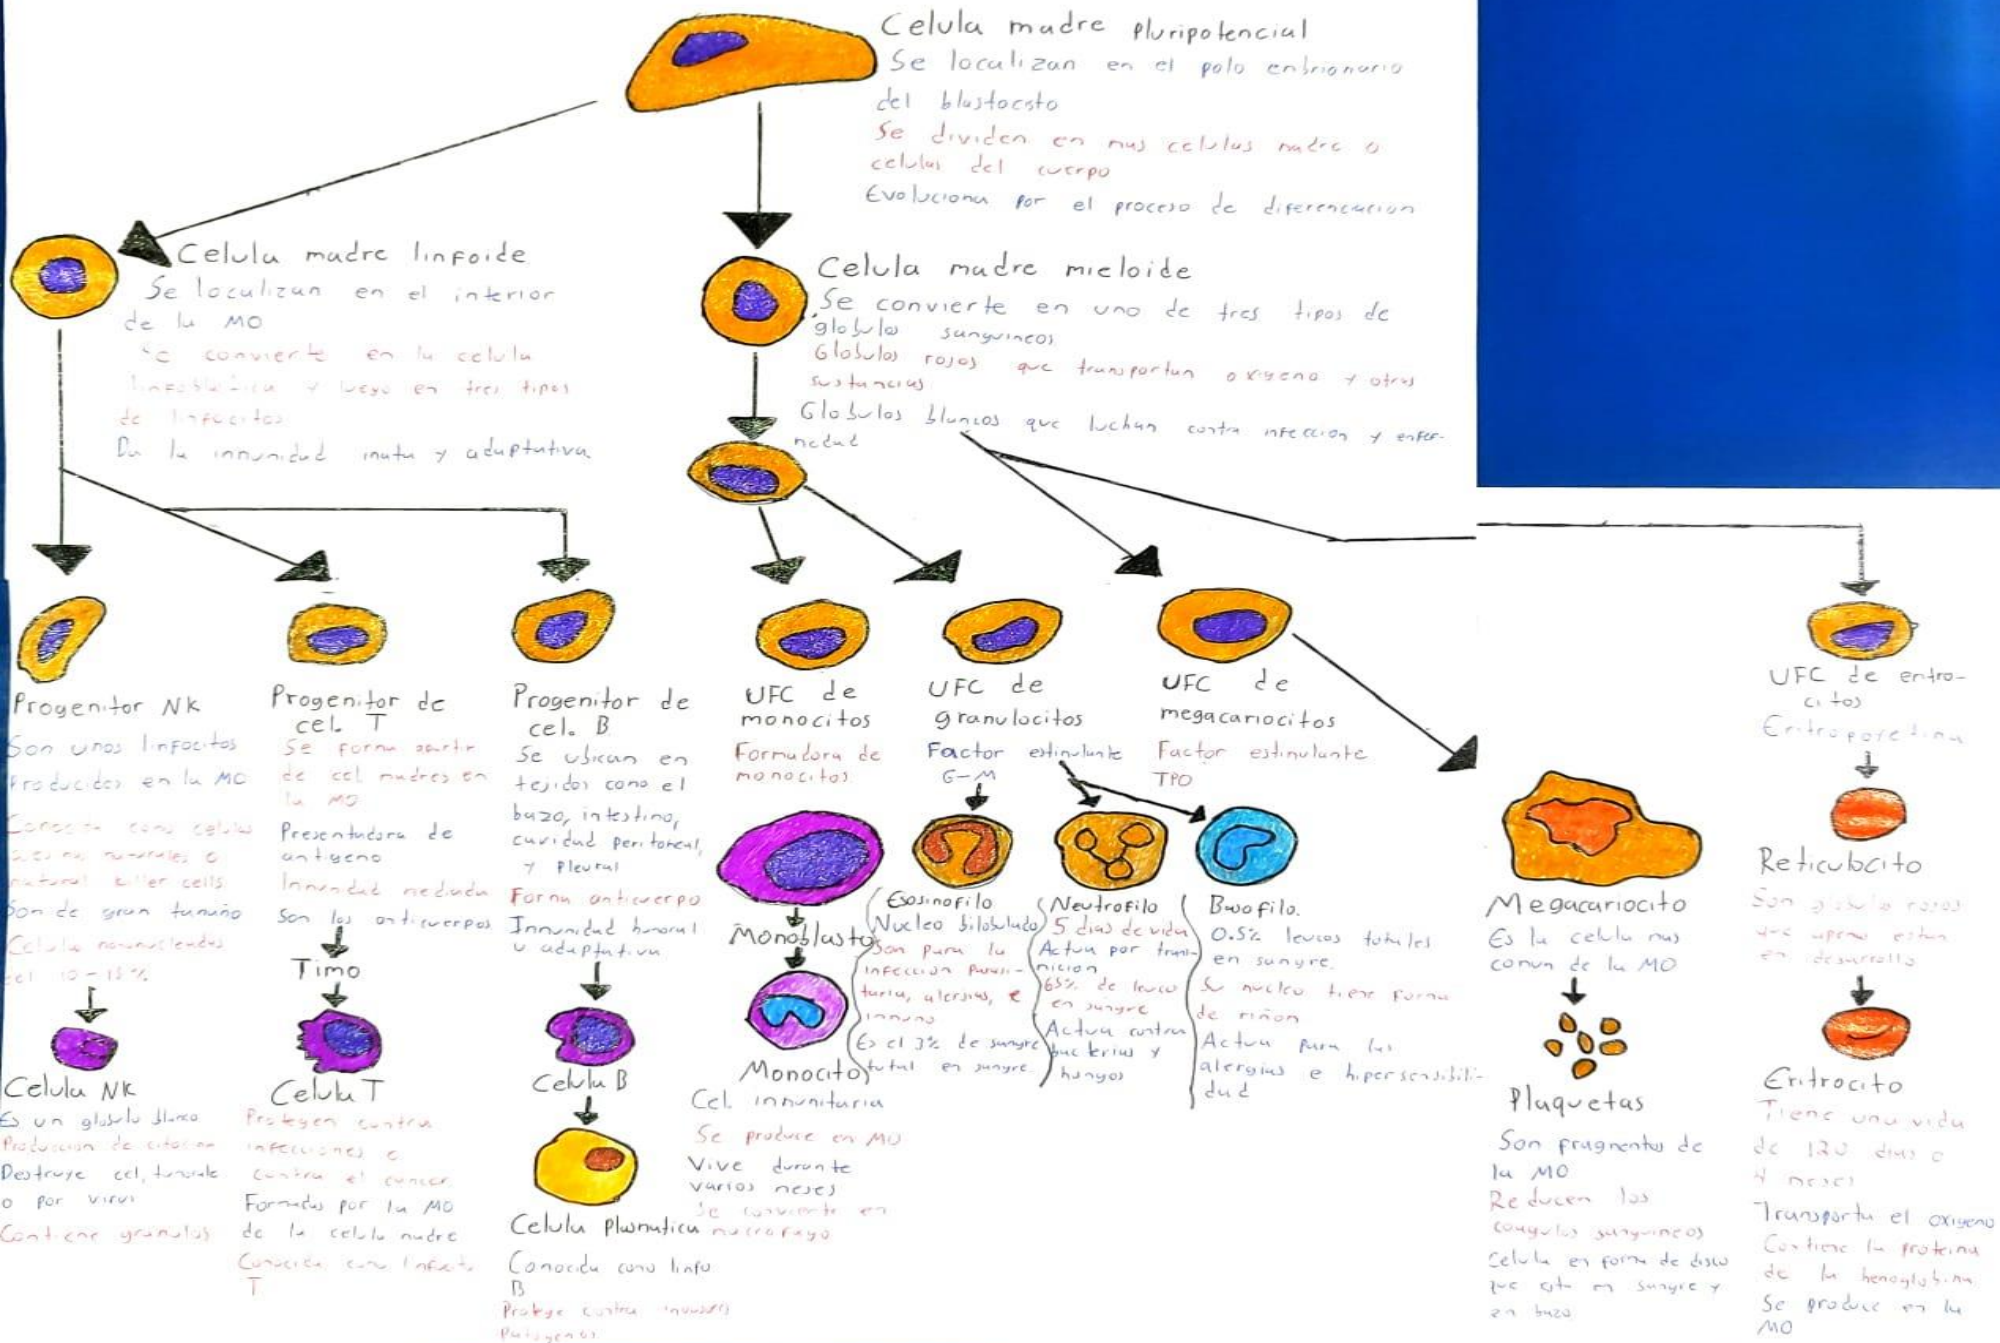 Celula madre Pluripotencial
Se localizan en el polo enbrionario
del blastocsto
Se dividen en mas celulas madre o
celulas del cuerpo
Evoluciona por el proceso de diferenciacion
Celula madre linfoide
Se localizan en el interior
de la MO
se convierte en la celula
y luego en tres tipos
de linfocitos
Da la innunidad inata y adaptativa
Celula madre mieloide
Se convierte en uno de tres tipos de
globulos sanguineos
Globulos rojos que transportan oxigeno y otras
sustancias
Globulos blancos que luchan contra infeccion y enfer-
nedad
Progenitor NK
Son unos linfocitos
Producidos en la MO
celulas
natural killer cells
Son de gran tamaño
Celula
del 10-15%
Celula NK
Es un globulo blanco
Produccion de
Destruye cel,
o por virus
Contiene granulos
Progenitor de
cel. T
Se forma partir
de cel madres en
la MO
Presentadora de
antigeno
Innunidad mediada
Son los anticuerpos
Timo
Celula T
Protegen contra
infecciones o
contra el cancer
Formadas por la MO
de la celula madre
Conocida como linfocito
T
Progenitor de
cel. B
Se ubican en
tejidos como el
bazo, intestino,
cavidad peritoneal,
y Pleural
Forna anticuerpo
Innunidad humoral
o adaptativa
Celula B
Celula plasmatica
Conocida como linfo
B
Protege contra
Patogenos
UFC de
monocitos
Formadora de
monocitos
Monoblasto
Monocito
Cel. innunitaria
Se produce en MO
Vive durante
varios neses
Se convierte en
macrofago
UFC de
granulocitos
Factor estinulante
G-M
Eosinofilo
Nucleo bilobulado
Son para la
infeccion Parasi-
taria, alergias, e
innuno
Es el 3% de sangre
total en sangre
Neutrofilo
5 dias de vida
Actua por
nicion
65% de leuco
en sangre
Actua contra
bacterias y
hongos
Basofilo.
0.5% leucos totales
en sangre.
Su nucleo tiene forma
de riñon
Actua para las
alergias e hipersensibili-
dad
UFC de
megacariocitos
Factor estinulante
TPO
Megacariocito
Es la celula mas
comun de la MO
Plaquetas
Son fragmentos de
la MO
Reducen los
coagulos sanguineos
Celula en forma de disco
que esta en sangre y
en bazo
UFC de eritro-
citos
Eritropoyetina
Reticulocito
Son globulo rojos
que apenas estan
en desarrollo
Eritrocito
Tiene una vida
de 120 dias o
4 neses
Transporta el oxigeno
Contiene la proteina
de la henoglobina
Se produce en la
MO